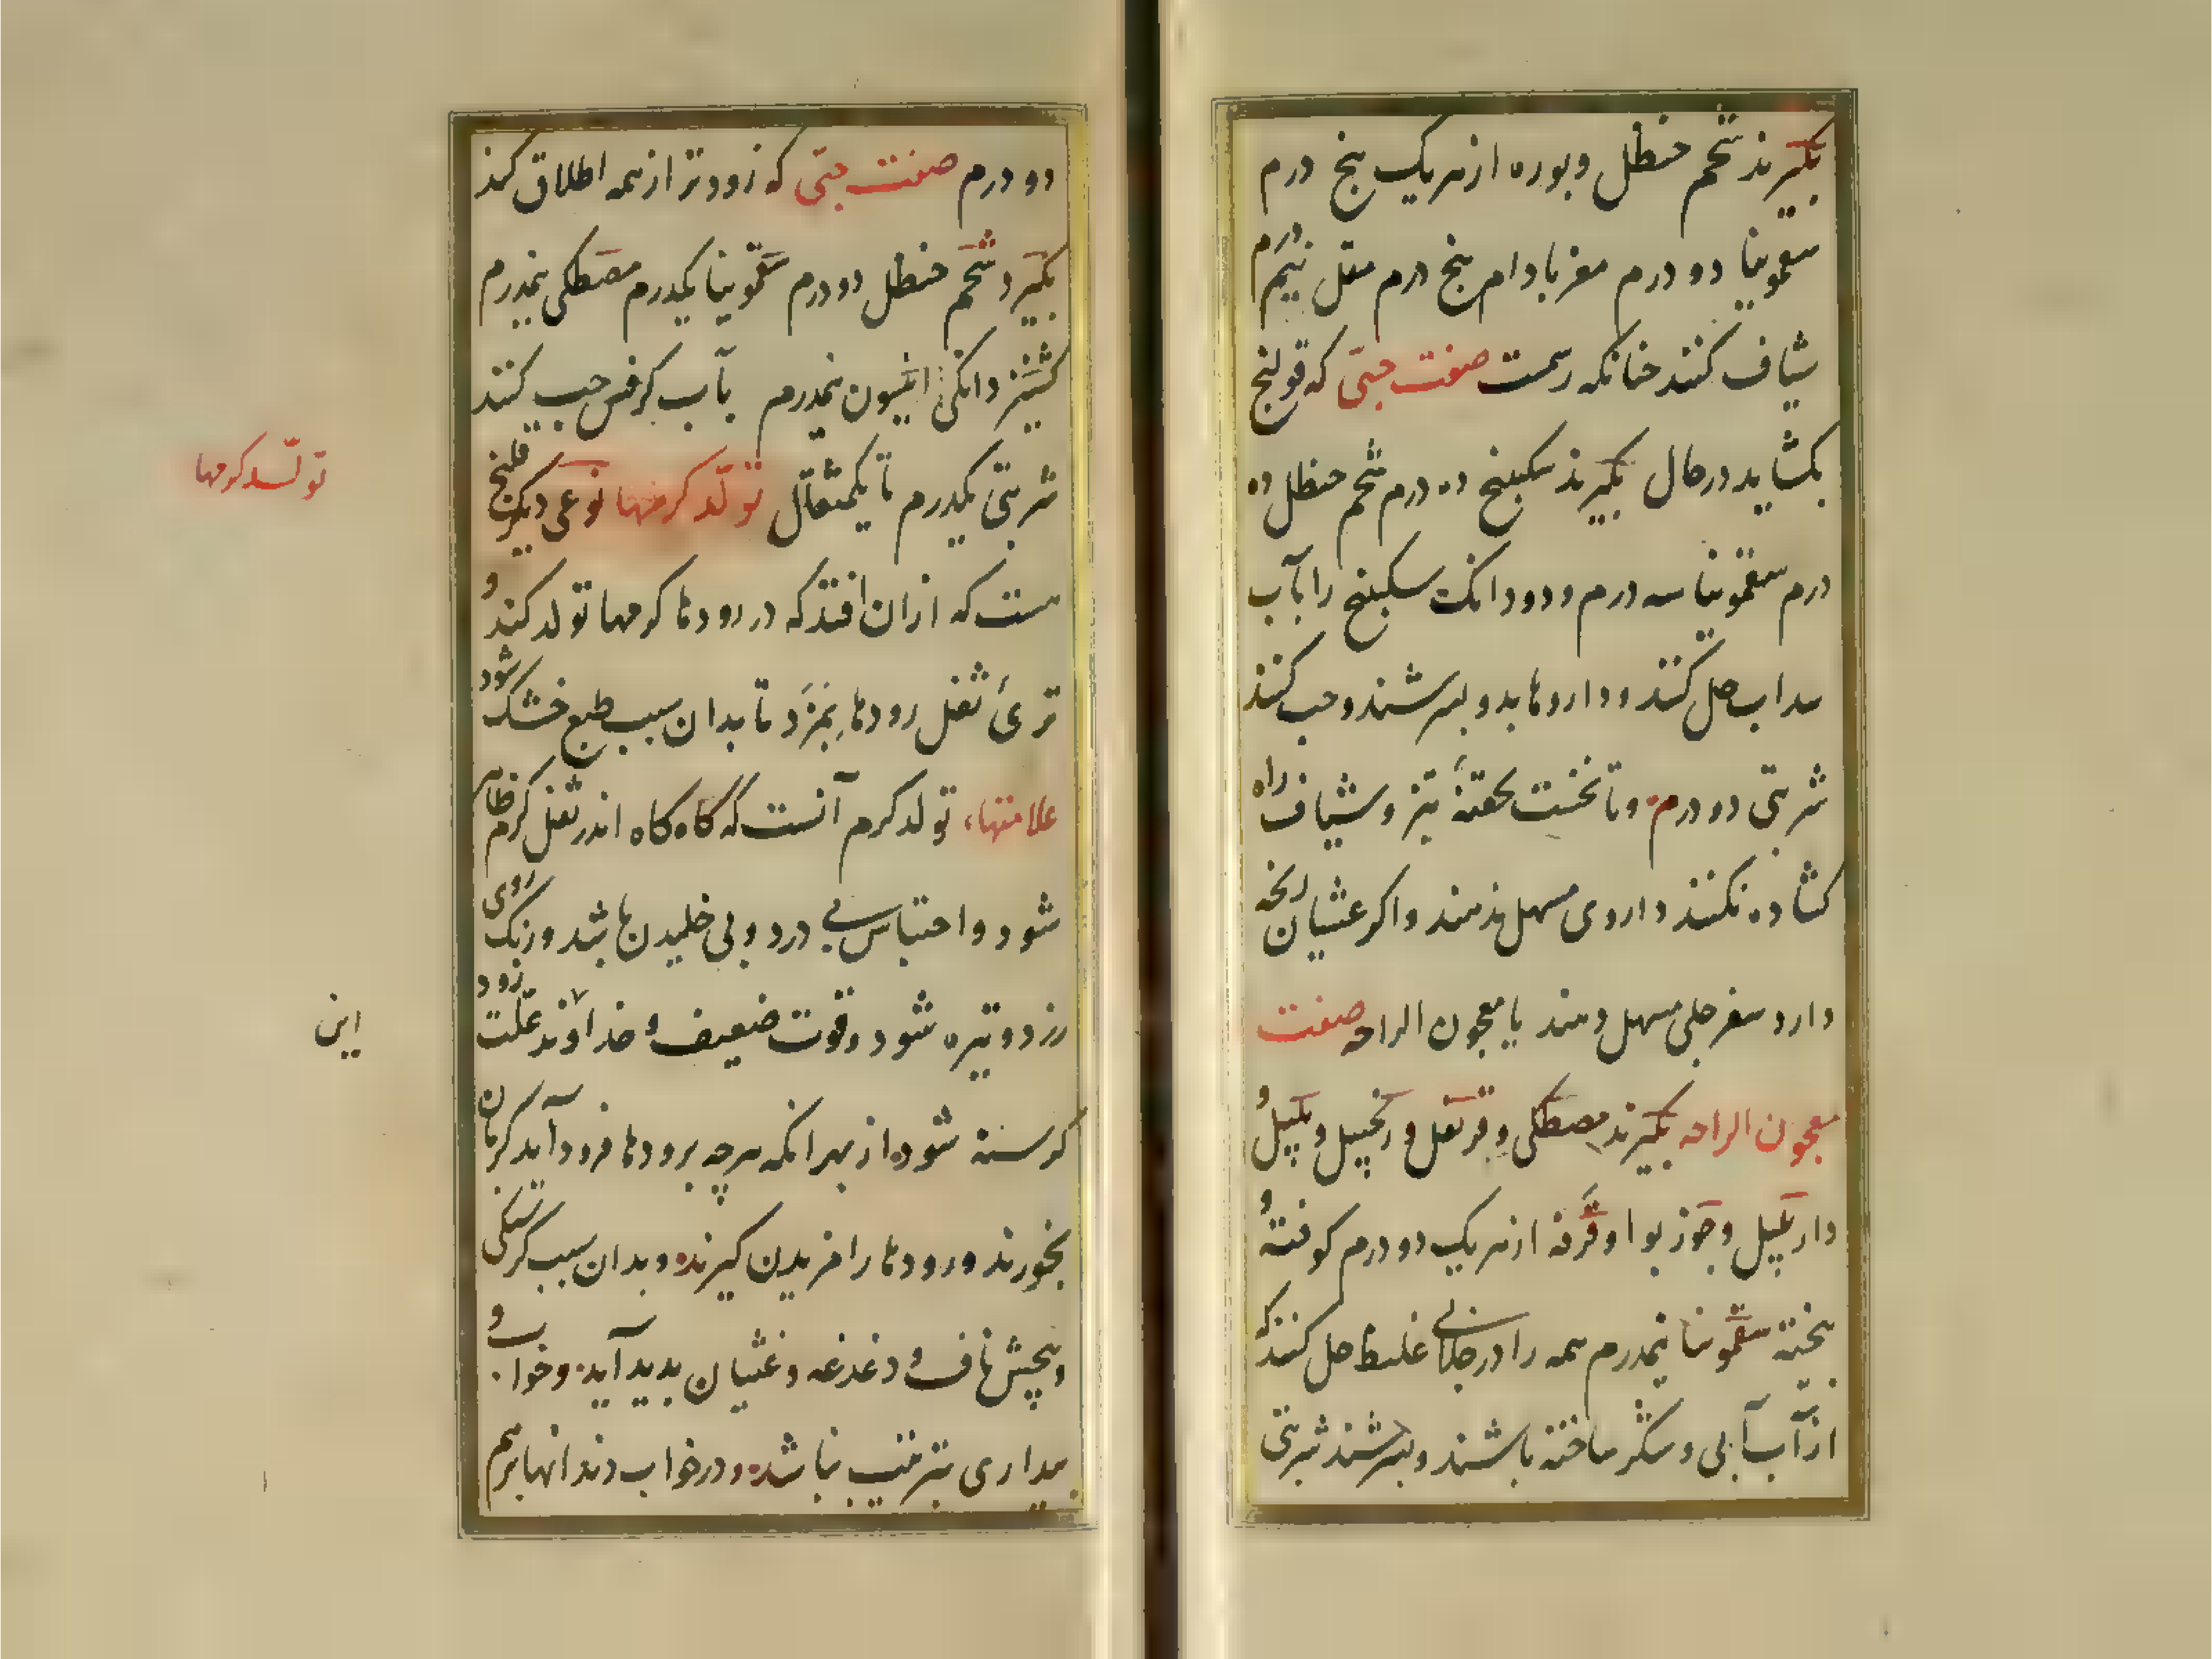 بگیرند شحم حنظل وبوره از هریک پنج درم
سقمونیا دو درم مغز بادام پنج درم مقل نیم درم
شیاف کنند چنانکه رسمست صفت حبّی که قولنج
بکشاید در حال بگیرند سکبینج ده درم شحم حنظل ده
درم سقمونیا سه درم و دو دانک سکبینج را بآب
سداب حل کنند و داروها بدو بسرشند و حب کنند
شربتی دو درم و تا نخست بحقنهٔ تیز و شیاف راه
کشاده نکنند داروی مسهل ندهند واکر غثیان رنجه
دارد سفرجلی مسهل دهند یا معجون الراحه صفت
معجون الراحه بگیرند مصطکی و قرنفل و زنجبیل و پلپل و
دارپلپل و جوز بوا و قرفه از هریک دو درم کوفته و
بیخته سقمونیا نیمدرم همه را در جلابی غلیظ حل کنند که
از آب آبی و شکر ساخته باشند و بسرشند شربتی
دو درم صفت حبّی که زودتر از همه اطلاق کند
بگیرد شحم حنظل دو درم سقمونیا یکدرم مصطکی نیمدرم
کشنیز دانکی انیسون نیمدرم بآب کرفس حب کنند
شربتی یکدرم تا یکمثقال تولّد کرمها نوعی دیگر قلنج
هست که از ان افتد که در رودها کرمها تولد کند و
تریٔ ثفل رودها بمزد تا بدان سبب طبع خشک شود
علامتهاء تولد کرم آنست که گاه گاه اندر ثفل کرم ظاهر
شود و احتباس بی درد و بی خلیدن باشد و رنک روی
زرد و تیره شود و قوت ضعیف و خداوند علّت زود
کرسنه شود از بهر انکه هرچه برودها فرود آید کرمان
بخورند و رودها را مزیدن کیرند و بدان سبب کرسنکی
و پیچش ناف و دغدغه و غثیان پدید آید و خواب و
بیداری بترتیب نباشد و در خواب دندانها بر هم
تولّد کرمها
این